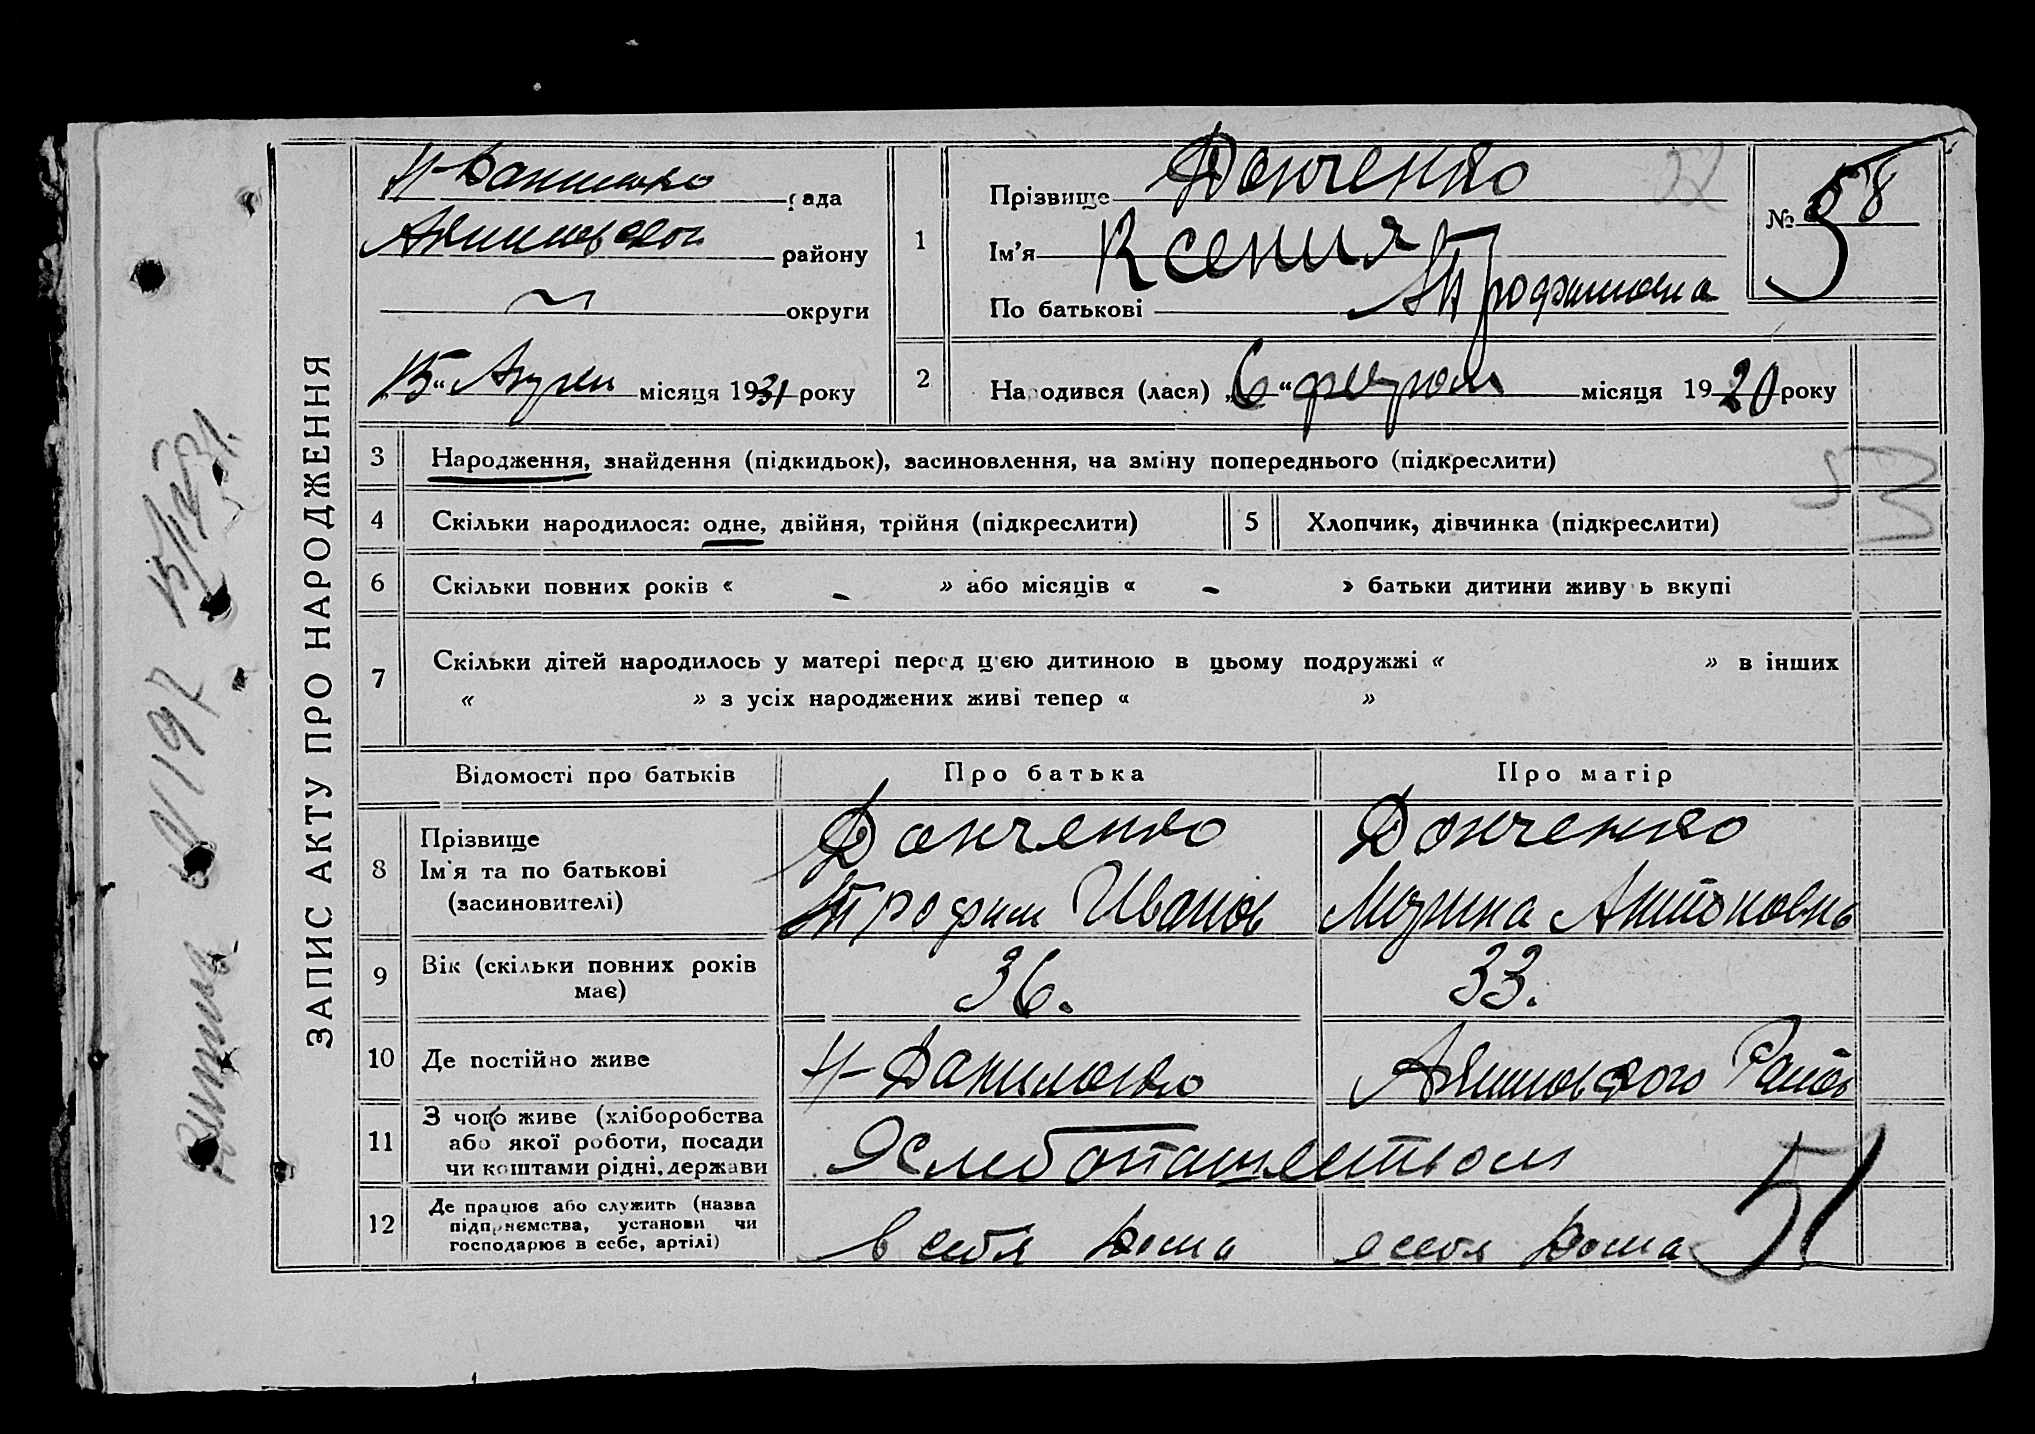 ЗАПИС АКТУ ПРО НАРОДЖЕННЯ
рада
району
округи
"15" Апрел місяця 1931 року
1
Прізвище Донченко
Ім'я Ксения
По батькові Трофимовна
№ 58
2
Народився (лася) „6" феврал місяця 1920 року
3 Народження, знайдення (підкидьок), засиновлення, на зміну попереднього (підкреслити)
4 Скільки народилося: одне, двійня, трійня (підкреслити)
5 Хлопчик, дівчинка (підкреслити)
6 Скільки повних років « - » або місяців « - » батьки дитини живуть вкупі
7 Скільки дітей народилось у матері перед цією дитиною в цьому подружжі « » в інших
« » з усіх народжених живі тепер « »
Відомості про батьків
Про батька
Про матір
8 Прізвище
Ім'я та по батькові
(засиновителі)
Донченко
Трофим Иванов
Донченко
Марина Антоновна
9 Вік (скільки повних років має)
36.
33.
10 Де постійно живе
Н-Даниловко
11 З чого живе (хліборобства
або якої роботи, посади
чи коштами рідні, держави
Хлебопашеством
12 Де працює або служить (назва
підприємства, установи чи
господарює в себе, артілі)
в себя дома
в себя дома
51
15/IV 31.
№ 197